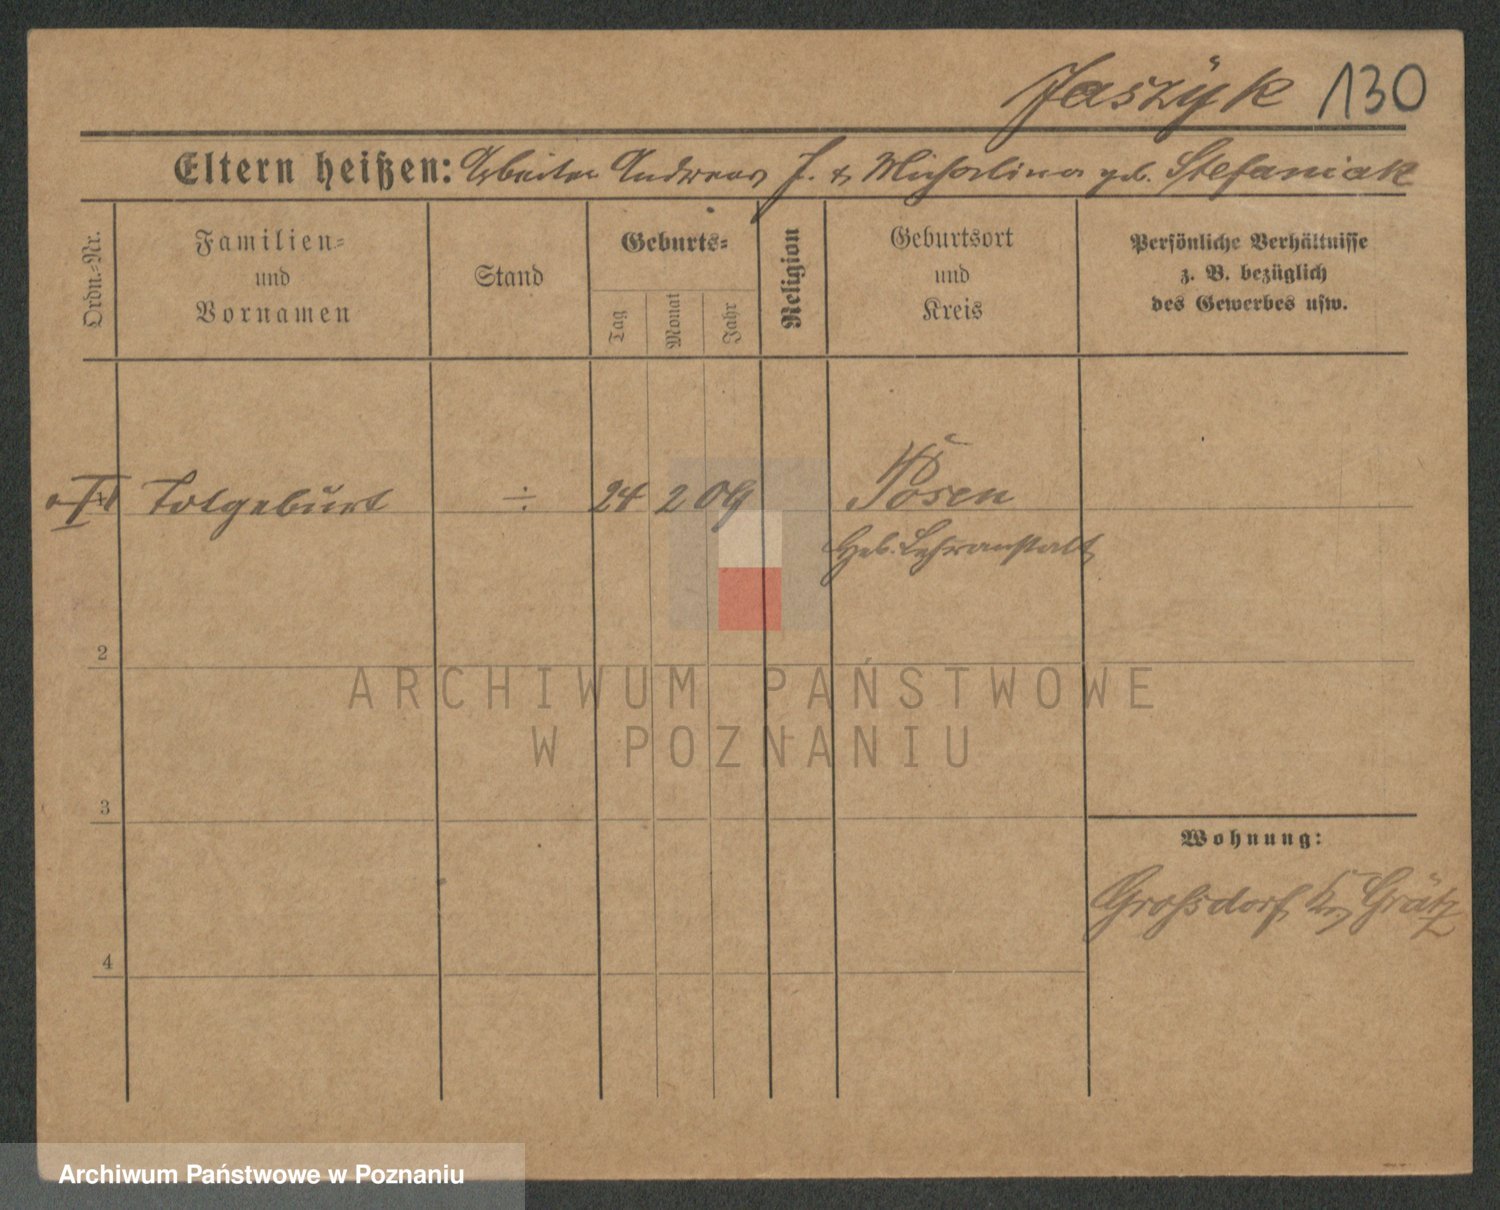 Jaszÿk 130
Eltern heißen: Arbeiter Andreas J. & Michalina geb. Stefaniak
Ordn.-Nr.
Familien-
und
Vornamen
Stand
Geburts-
Tag
Monat
Jahr
Religion
Geburtsort
und
Kreis
Persönliche Verhältnisse
z. B. bezüglich
des Gewerbes usw.
Totgeburt ÷ 24 2 09 Posen
Heb. Lehranstalt
2
ARCHIWUM PAŃSTWOWE
W POZNANIU
3
Wohnung:
Grossdorf, Kr. Grätz
4
Archiwum Państwowe w Poznaniu